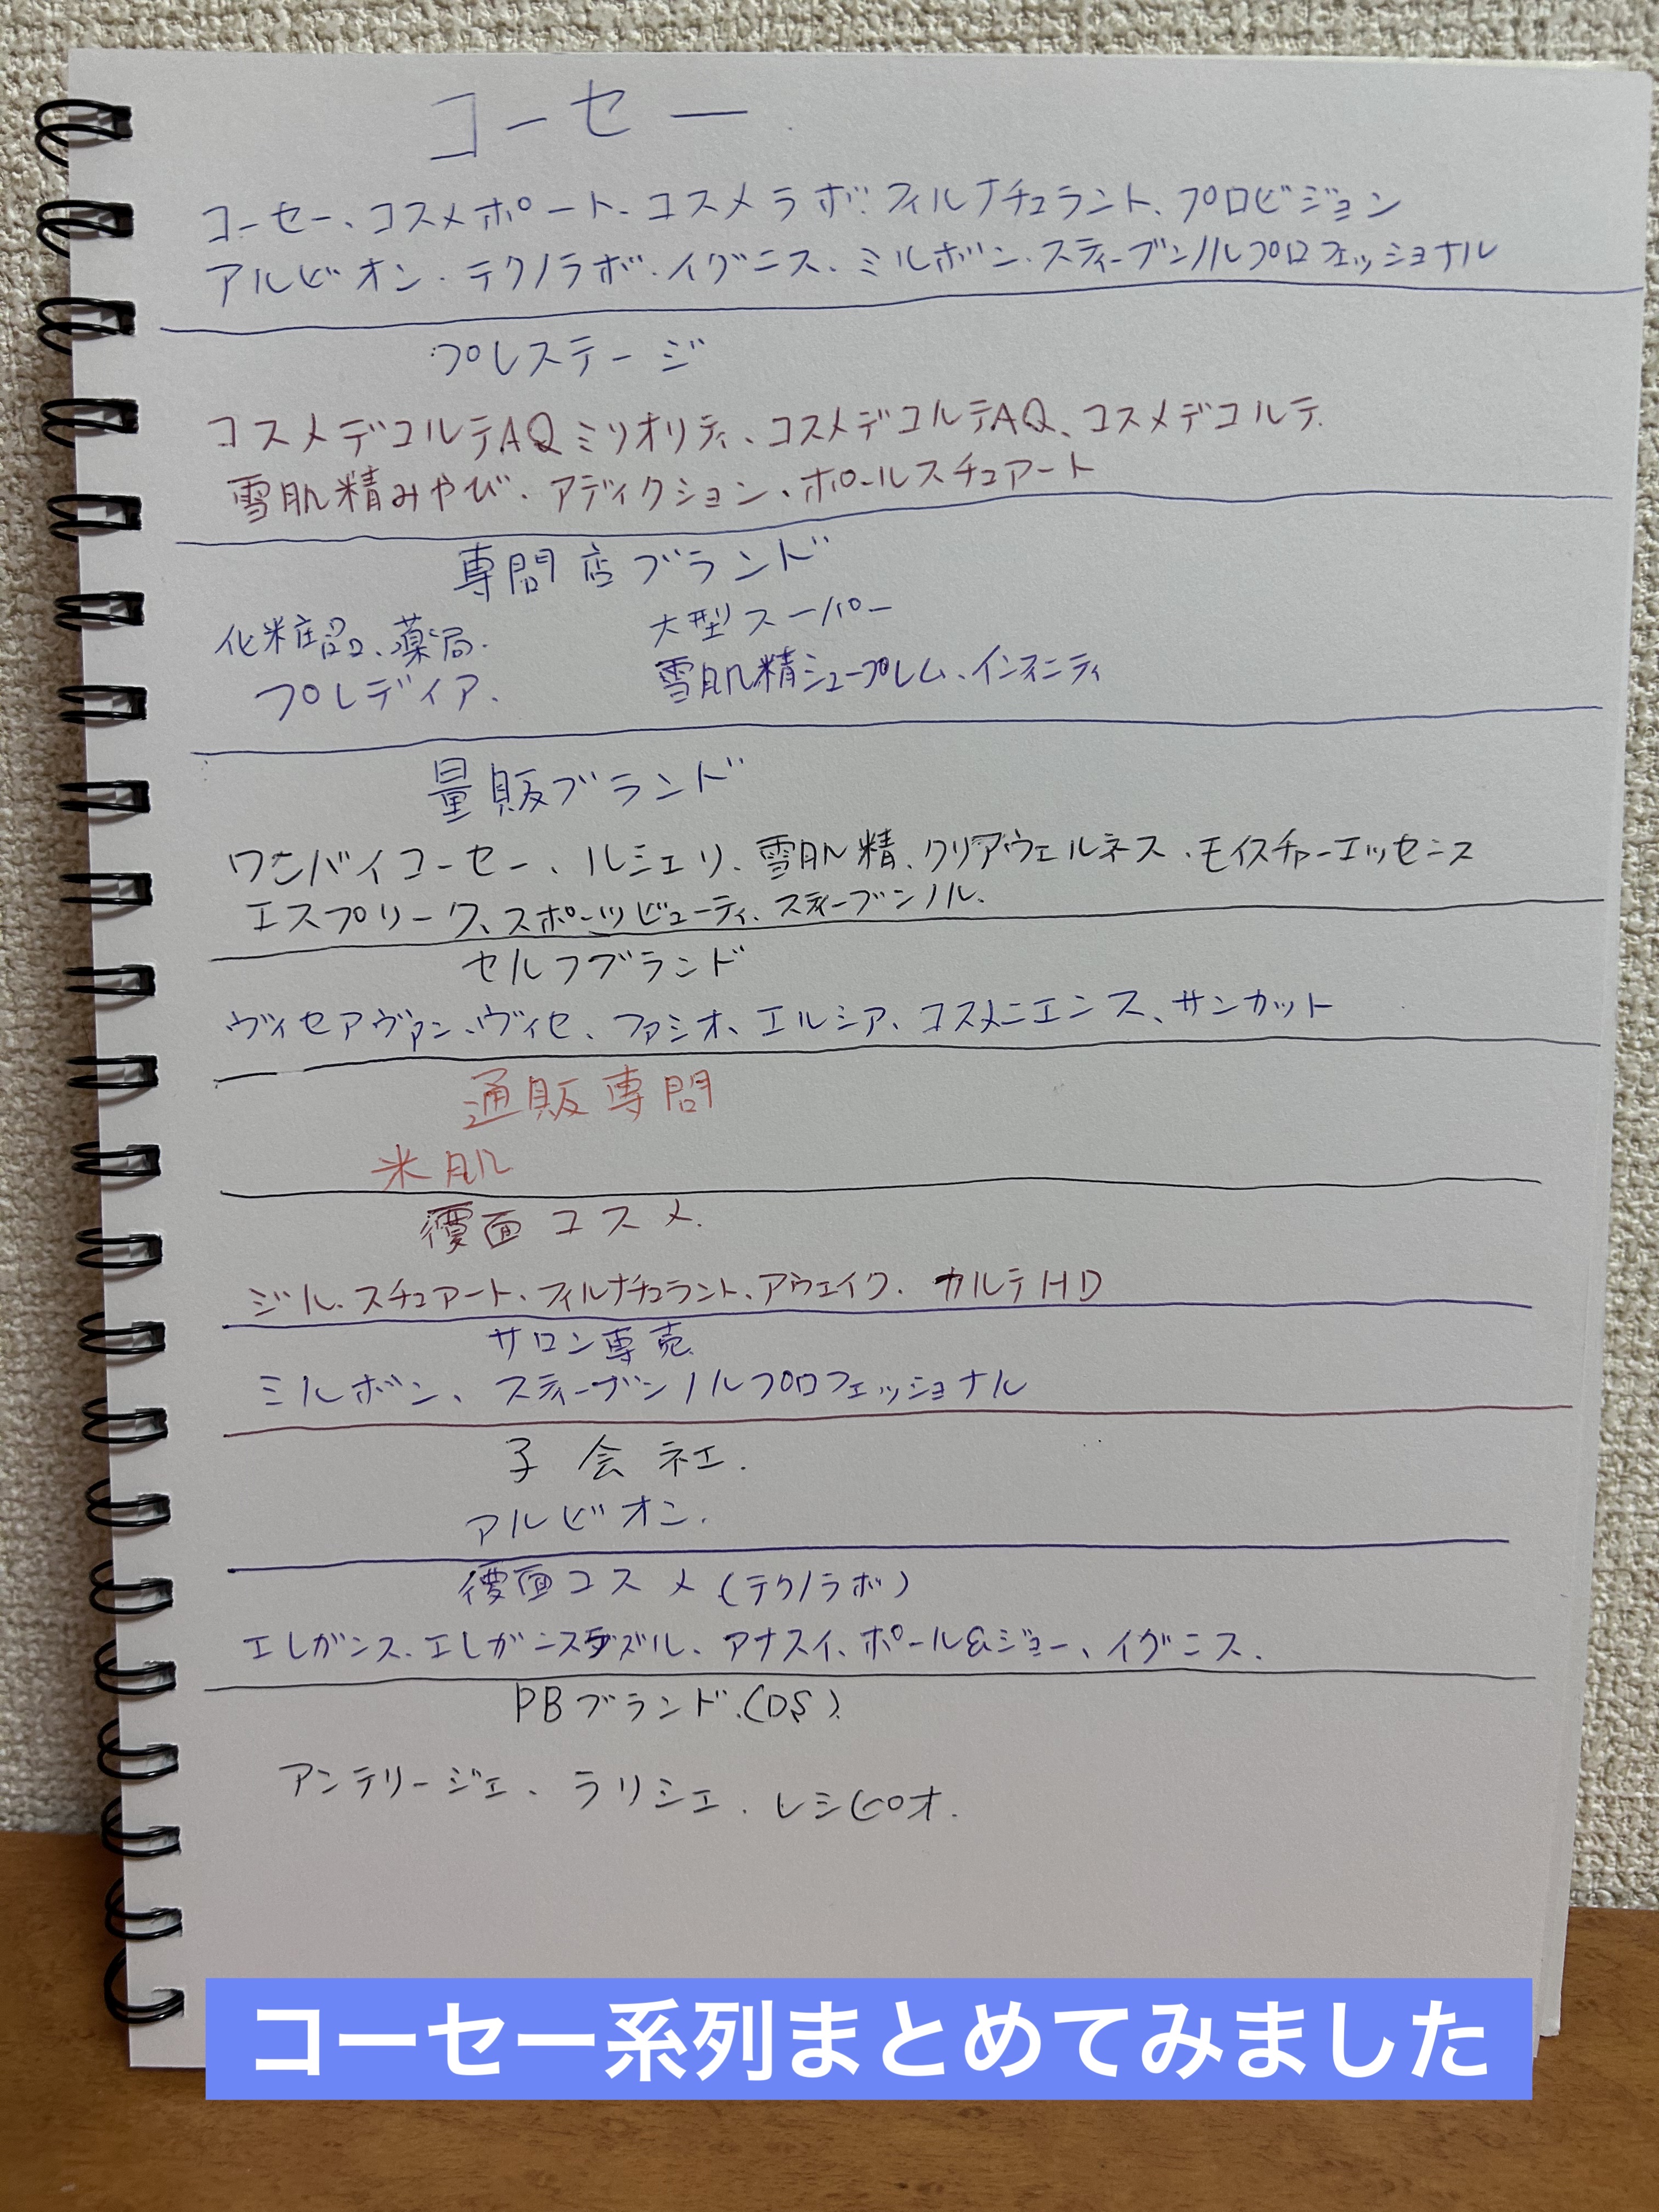 コーセー
コーセー、コスメポート、コスメラボ、フィルナチュラント、プロビジョン
アルビオン・テクノラボ・イグニス、ミルボン・スティーブンノルプロフェッショナル
プレステージ
コスメデコルテAQミリオリティ、コスメデコルテAQ、コスメデコルテ.
雪肌精みやび、アディクション、ポールスチュアート
専問店ブランド
化粧品、薬局.
プレディア.
大型スーパー
雪肌精シュープレム、インフィニティ
量販ブランド
ワンバイコーセー、ルシェリ、雪肌精、クリアウェルネス、モイスチャーエッセンス
エスプリーク、スポーツビューティ、スティーブンノル.
セルフブランド
ヴィセアヴァン、ヴィセ、ファシオ、エルシア、コスメニエンス、サンカット
通販専問
米肌
覆面コスメ.
ジル、スチュアート、フィルナチュラント、アウェイク. カルテHD
サロン専売
ミルボン、スティーブンノルプロフェッショナル
子会社.
アルビオン.
覆面コスメ(テクノラボ)
エレガンス、エレガンスダズル、アナスイ、ポール&ジョー、イグニス.
PBブランド.(DS)
アンテリージェ、ラリシェ.レシピオ.
コーセー系列まとめてみました